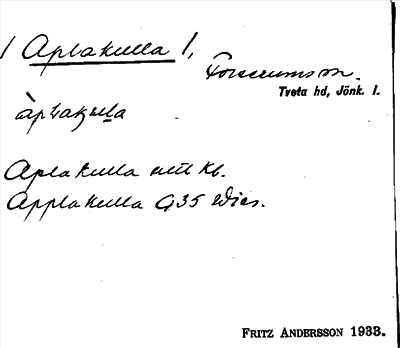 / Aplakulla /,
Forserums sn.
Tveta hd, Jönk. l.
àplakulla
Aplakulla utt kb.
Applakulla G35 Wies.
FRITZ ANDERSSON 1933.